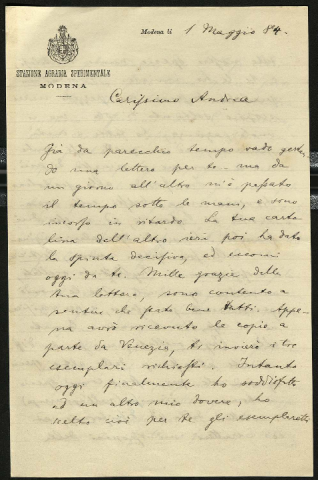 Modena li 1 Maggio 84.
STAZIONE AGRARIA SPERIMENTALE
MODENA
Carissimo Andrea
Già da parecchio tempo vado gestan
do una lettera per te - ma da
un giorno all'altro m'è passato
il tempo sotto le mani, e sono
incorso in ritardo. La tua carto
lina dell'altro ieri poi ha dato
la spinta decisiva, ed eccomi
oggi da te. Mille grazie della
tua lettera, sono contento a
sentire che state bene tutti. Appe-
na avrò ricevuto le copie a
parte da Venezia, ti invierò i tre
esemplari richiesti. Intanto
oggi finalmente ho soddisfatto
ad un altro mio dovere, ho
scelto cioè per te gli esemplari